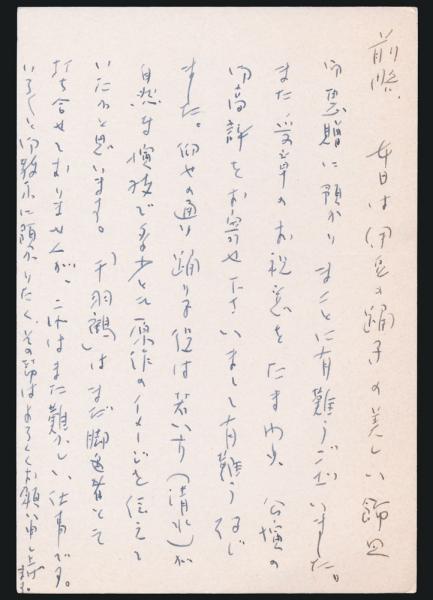 前略、 毎日は伊豆の踊子の美しい飾皿
御恵贈に預かり まことに有難うございました。
また 受章のお祝意を たまわり、 公演の
御高評をお寄せ下さいまして 有難う存じ
ました。 仰せの通り 踊り子役は若い方(清水)が
自然な演技で 多少とも原作のイメージを伝えて
いたかと思います。 「千羽鶴」は まだ脚色者とも
打ち合せておりませんが、 これはまた難かしい仕事です。
いろいろ御教示に預かりたく、その節はよろしくお願い申し上げます。